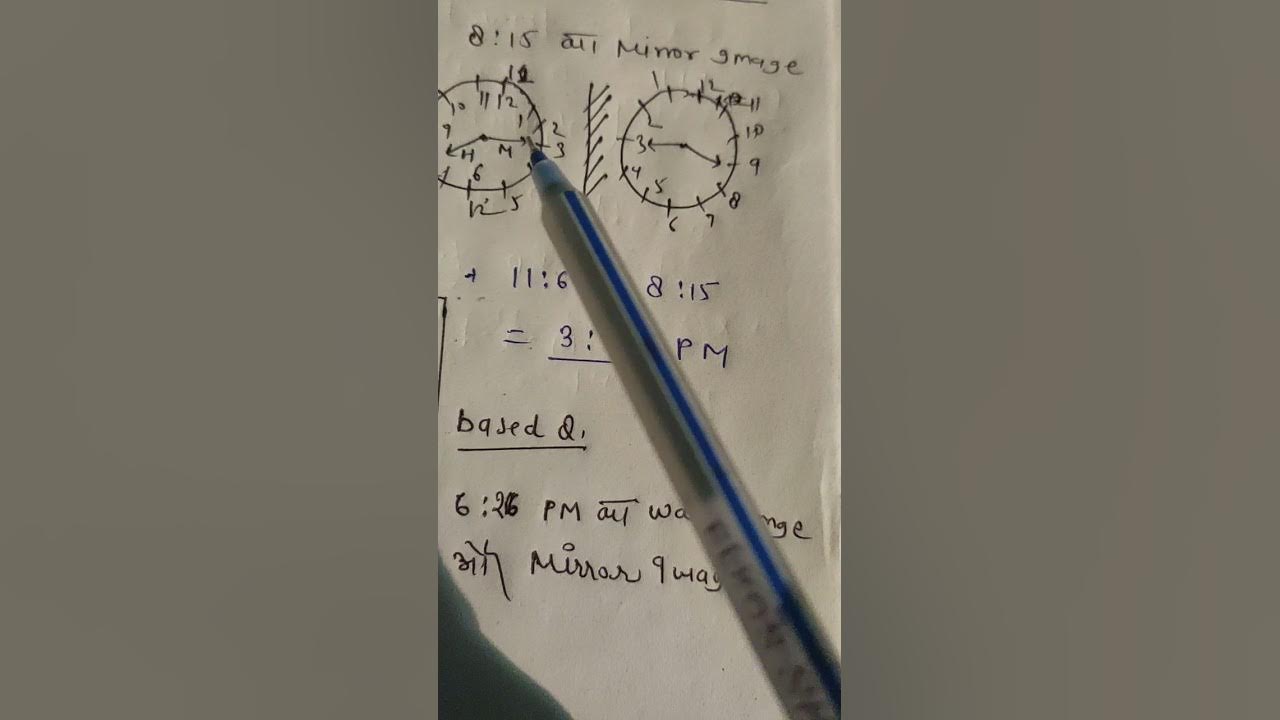 8:15 का Mirror Image
10 11 12 1 2 3 9 H M 6 5
1 12 11 2 10 3 9 4 5 8 6 7
11:6 8:15
= 3: PM
based Q.
6:26 PM का
ओर Mirror